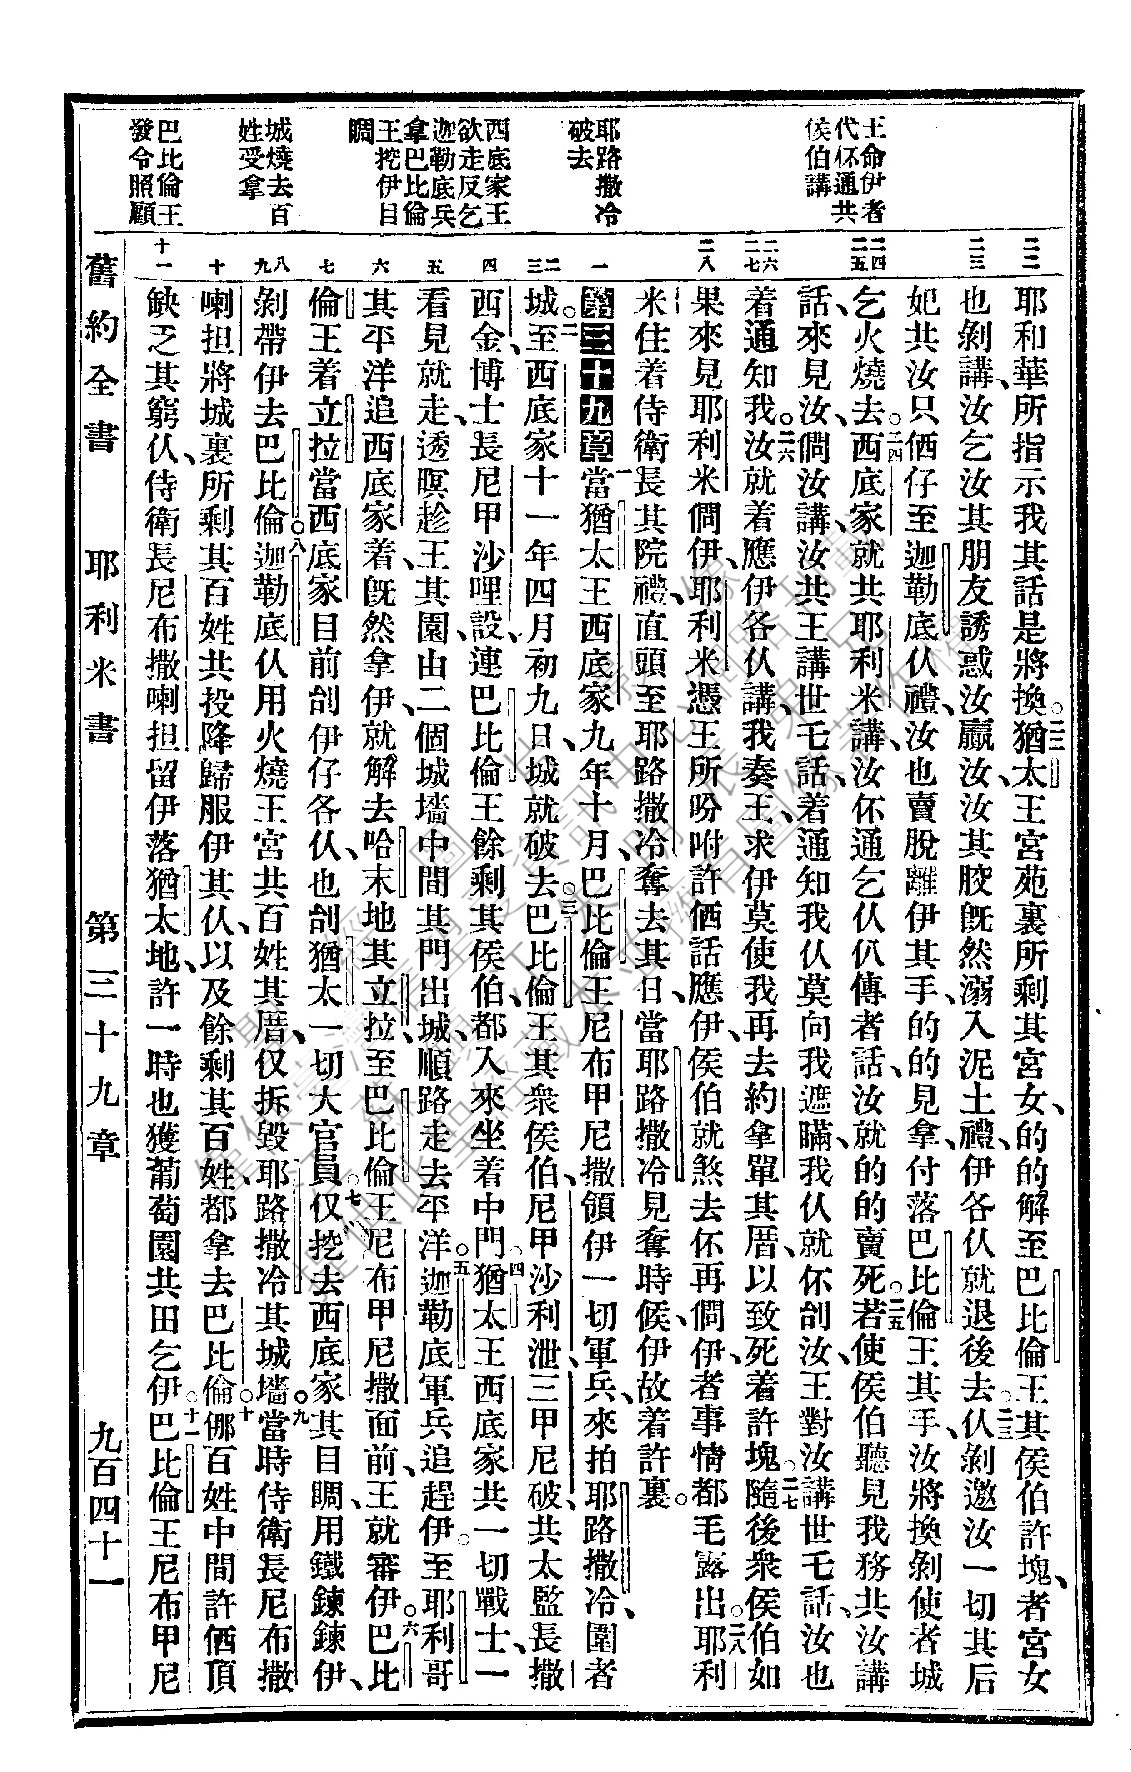 王命伊者
代伓通共
侯伯講
耶路撒冷
破去
西底家王
欲走反乞
迦勒底兵
拿巴比倫
王挖伊目
睭
城燒去百
姓受拿
巴比倫王
發令照顧
二二
二三
二四
二五
二六
二七
二八
一
二
三
四
五
六
七
八
九
十
十一
耶和華所指示我其話是將換。二二猶太王宮苑裏所剩其宮女、的的解至巴比倫王其侯伯許塊、者宮女
也剝講、汝乞汝其朋友誘惑汝贏汝、汝其骹旣然溺入泥土禮、伊各仈就退後去。二三仈剝邀汝一切其后
妃共汝只𠆧仔至迦勒底仈禮、汝也賣脫離伊其手、的的見拿付落巴比倫王其手、汝將換剝使者城
乞火燒去。二四西底家就共耶利米講、汝伓通乞仈仈傳者話、汝就的的賣死。二五若使侯伯聽見我務共汝講
話、來見汝、倜汝講、汝共王講世乇話、着通知我仈莫向我遮瞞、我仈就伓刣汝、王對汝講世乇話、汝也
着通知我。二六汝就着應伊各仈講、我奏王、求伊莫使我再去約拿單其厝、以致死着許塊。二七隨後衆侯伯如
果來見耶利米倜伊、耶利米憑王所吩咐許𠆧話應伊、侯伯就煞去伓再倜伊、者事情都毛露出。二八耶利
米住着侍衛長其院禮、直頭至耶路撒冷奪去其日、當耶路撒冷見奪時候、伊故着許裏。
第三十九章一當猶太王西底家九年十月、巴比倫王尼布甲尼撒領伊一切軍兵、來拍耶路撒冷、圍者
城。二至西底家十一年四月初九日、城就破去。三巴比倫王其衆侯伯、尼甲沙利泄、三甲尼破、共太監長撒
西金、博士長尼甲沙哩設、連巴比倫王餘剩其侯伯、都入來坐着中門。四猶太王西底家共一切戰士、一
看見就走、透暝趁王其園由二個城墻中間其門出城、順路走去平洋。五迦勒底軍兵追趕伊、至耶利哥
其平洋追西底家着、旣然拿伊、就解去哈末地其立拉、至巴比倫王尼布甲尼撒面前、王就審伊。六巴比
倫王着立拉當西底家目前刣伊仔各仈、也刣猶太一切大官員。七仅挖去西底家其目睭、用鐵鍊鍊伊、
剝帶伊去巴比倫。八迦勒底仈用火燒王宮共百姓其厝、仅拆毀耶路撒冷其城墻。九當時侍衛長尼布撒
喇担將城裏所剩其百姓共投降歸服伊其仈、以及餘剩其百姓、都拿去巴比倫。十倻百姓中間許𠆧頂
缺乏其窮仈、侍衛長尼布撒喇担留伊落猶太地、許一時也獲葡萄園共田乞伊。十一巴比倫王尼布甲尼
舊約全書 耶利米書 第三十九章 九百四十一